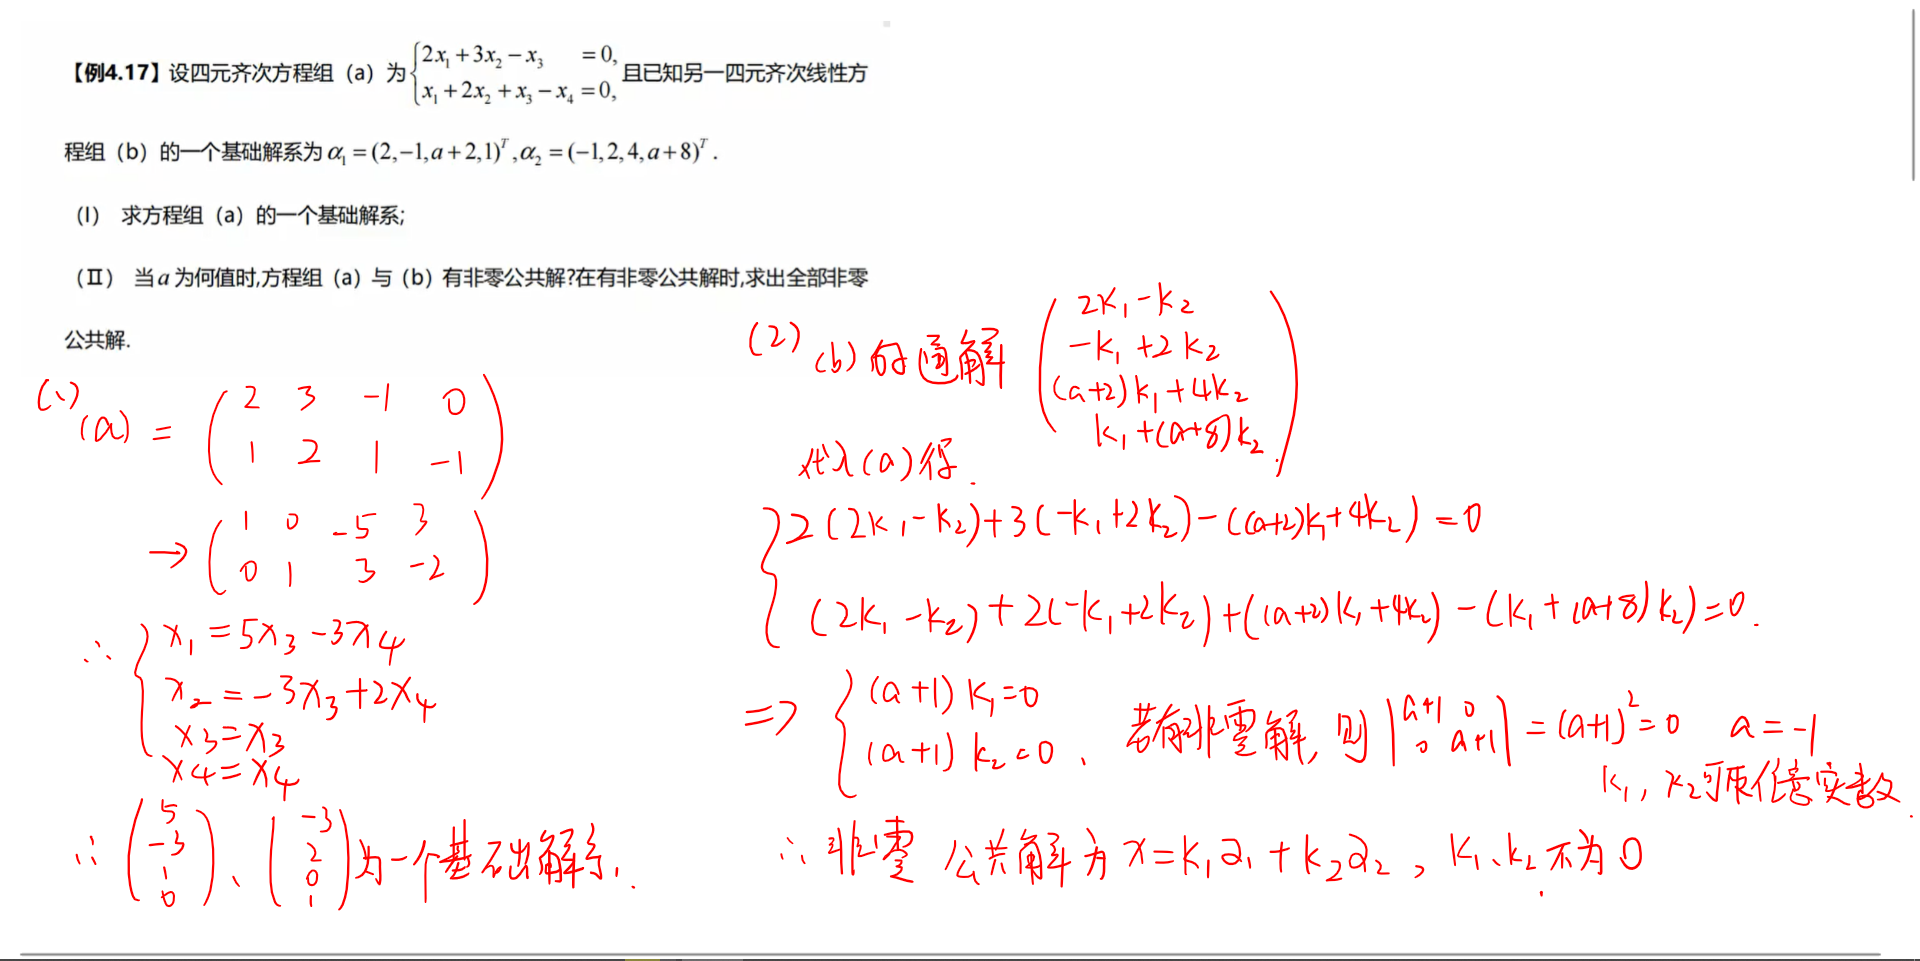 【例4.17】设四元齐次方程组（a）为{2x₁+3x₂−x₃ =0, x₁+2x₂+x₃−x₄=0, 且已知另一四元齐次线性方
程组（b）的一个基础解系为α₁=(2,−1,a+2,1)ᵀ,α₂=(−1,2,4,a+8)ᵀ.
（Ⅰ） 求方程组（a）的一个基础解系;
（Ⅱ） 当a为何值时,方程组（a）与（b）有非零公共解?在有非零公共解时,求出全部非零
公共解.
(1)
(a) = (2 3 -1 0
1 2 1 -1)
→ (1 0 -5 3
0 1 3 -2)
∴ {x₁=5x₃-3x₄
x₂=-3x₃+2x₄
x₃=x₃
x₄=x₄
∴ (5 -3 1 0)、(-3 2 0 1)为一个基础解系.
(2) (b)的通解 (2k₁-k₂
-k₁+2k₂
(a+2)k₁+4k₂
k₁+(a+8)k₂)
代入(a)得.
{2(2k₁-k₂)+3(-k₁+2k₂)-((a+2)k₁+4k₂)=0
(2k₁-k₂)+2(-k₁+2k₂)+((a+2)k₁+4k₂)-(k₁+(a+8)k₂)=0.
⇒ {(a+1)k₁=0
(a+1)k₂=0、若有非零解,则|a+1 0 0 a+1|=(a+1)²=0 a=-1
k₁,k₂可取任意实数.
∴非零公共解为x=k₁α₁+k₂α₂,k₁、k₂不为0